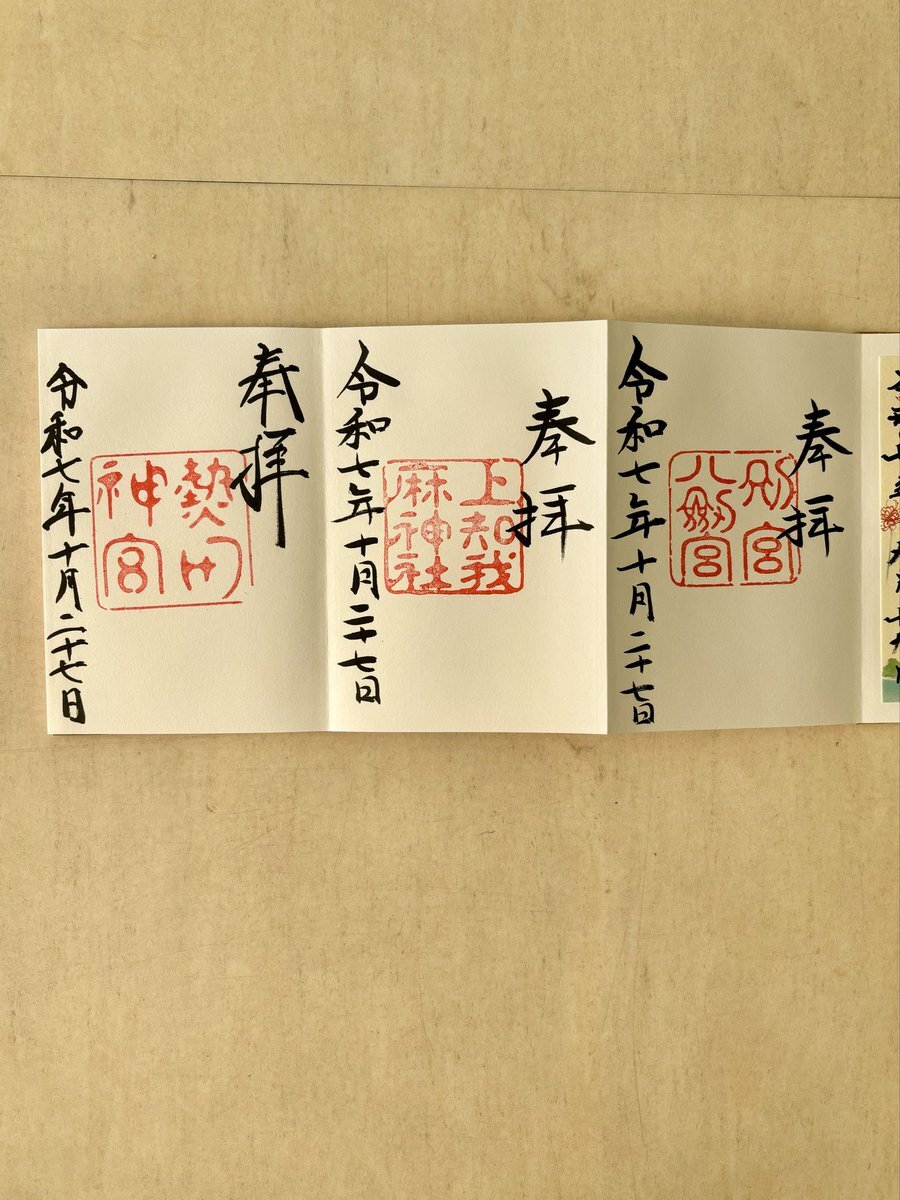 奉拝
別宮
八剱宮
令和七年十月二十七日
奉拝
上知我
麻神社
令和七年十月二十七日
奉拝
熱田
神宮
令和七年十月二十七日